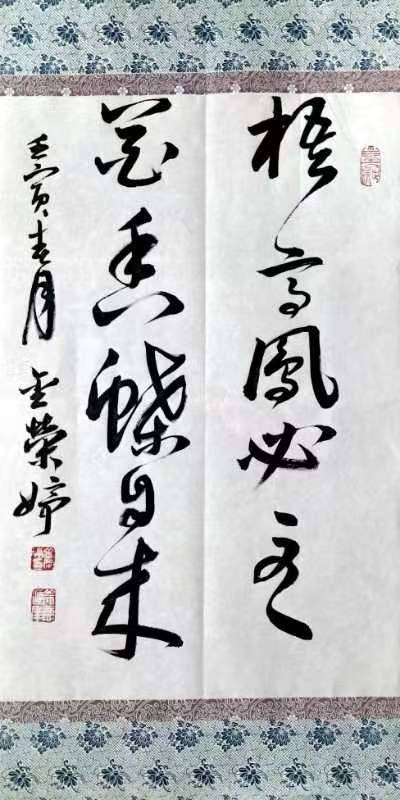 梧高鳳必至
花香蝶自来
壬寅春月 金榮婷